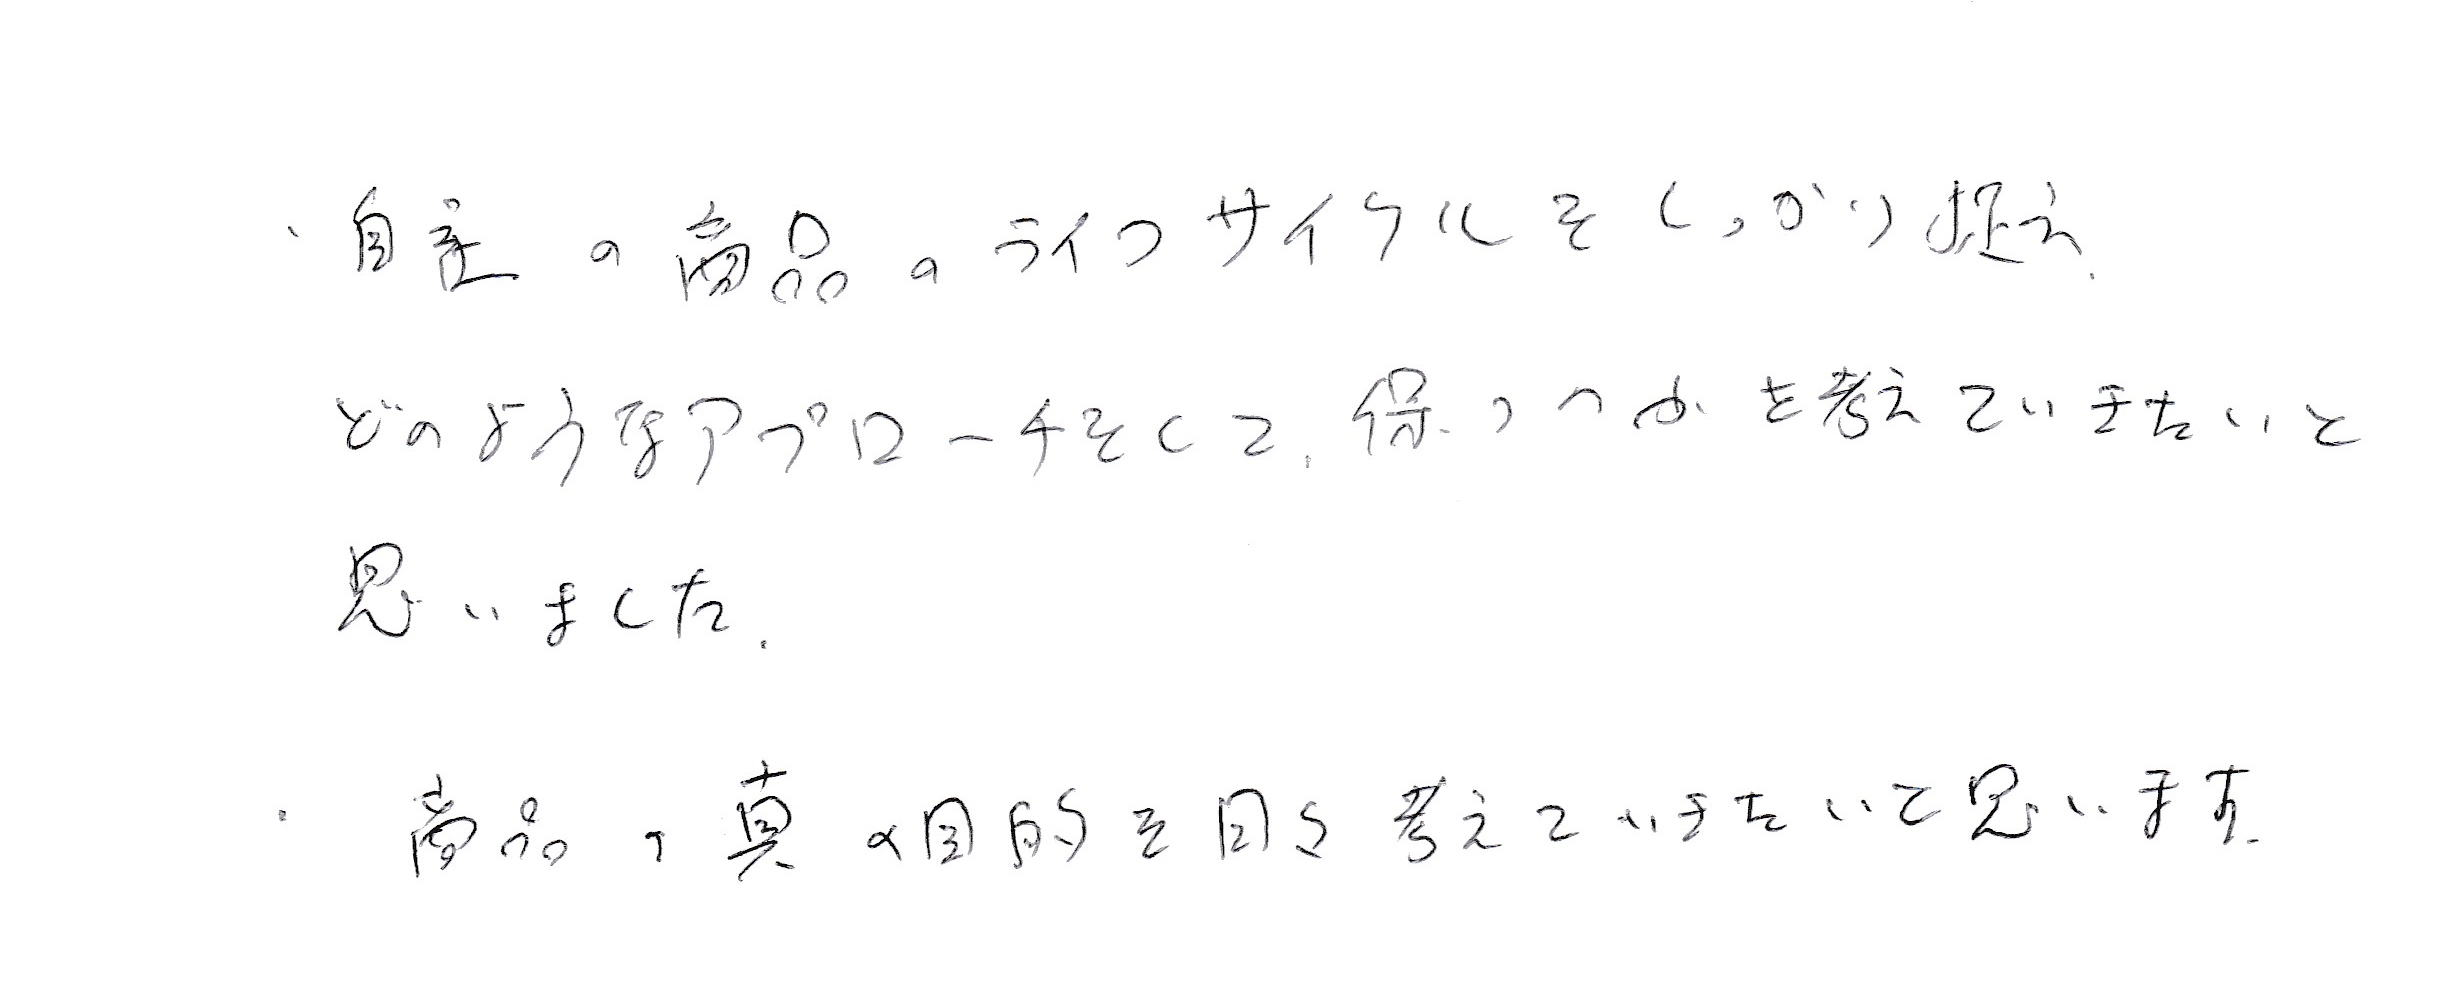 ・自社の商品のライフサイクルをしっかり捉え、
どのようなアプローチをして、保つのかを考えていきたいと
思いました。
・商品の真の目的を日々考えていきたいと思います。